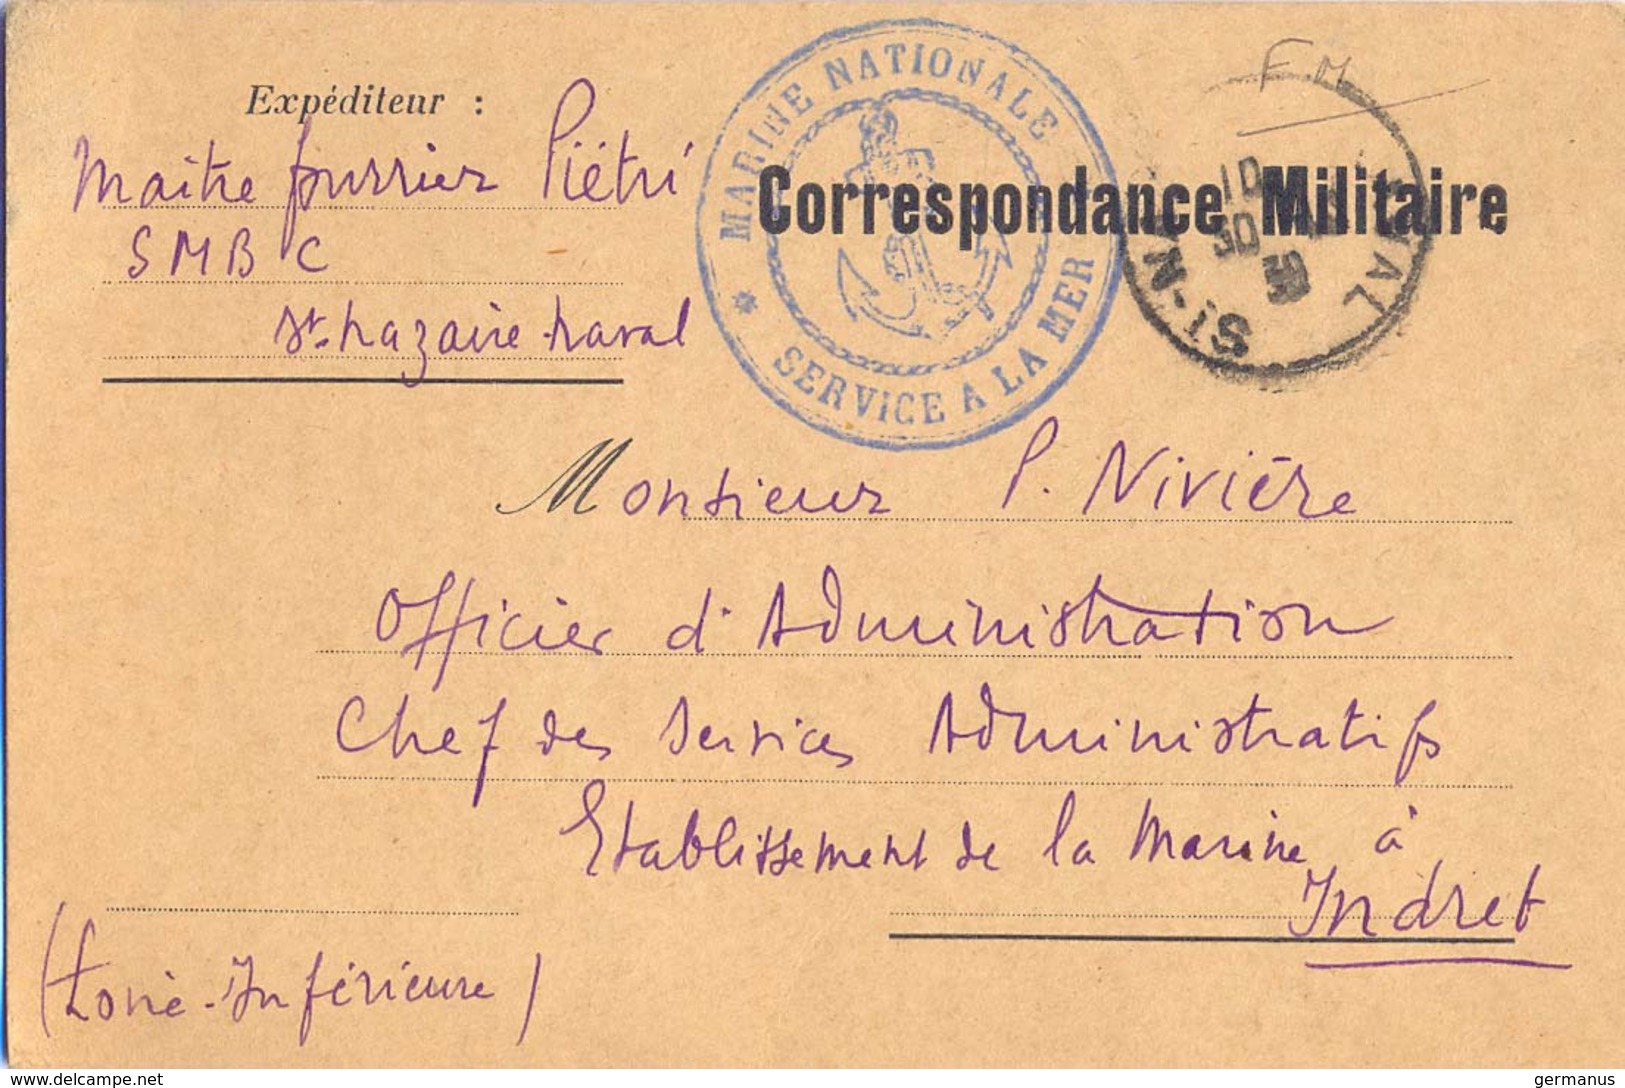 Expéditeur :
Maître fourrier Piëtri
SMBC
St. Nazaire-naval
MARINE NATIONALE
* SERVICE A LA MER
F M
Correspondance Militaire
10
30
39
St-NA
VAL
Monsieur P. Nivière
Officier d'Administration
Chef des Services Administratifs
Etablissement de la Marine à
Indret
(Loire-Inférieure)
delcampe.net
germanus